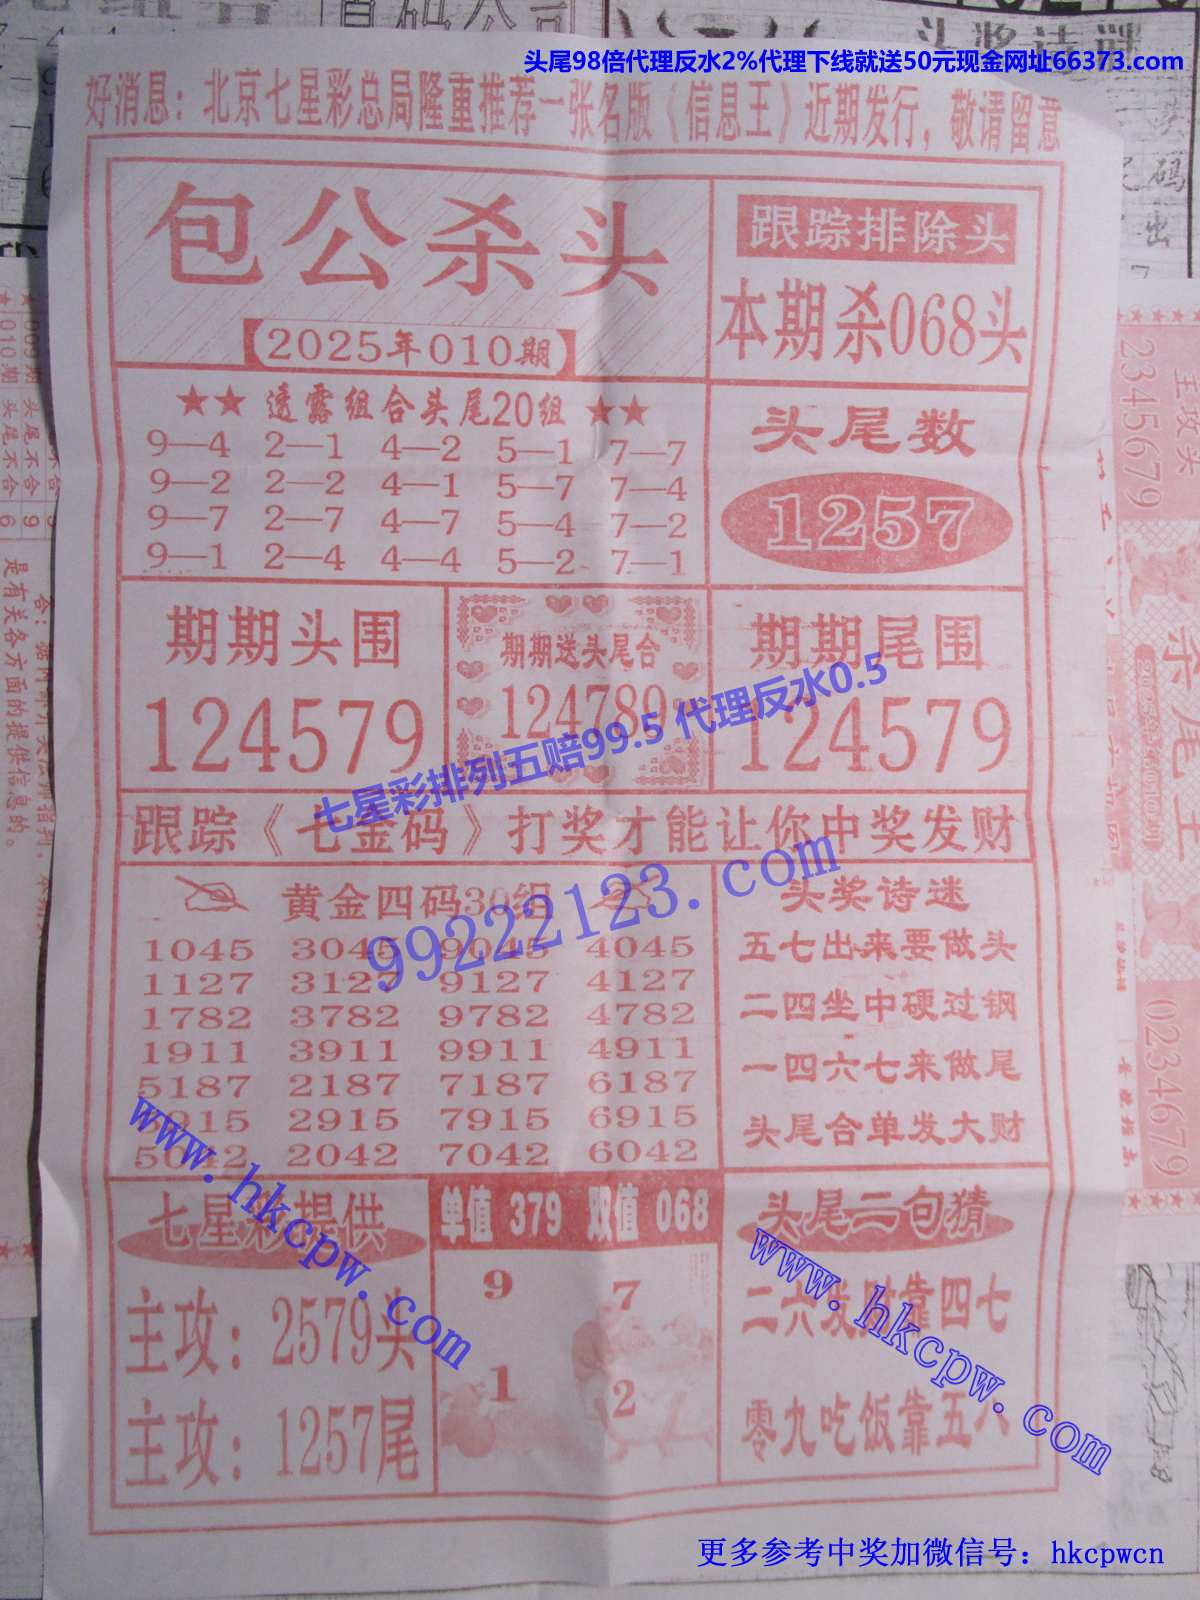 头尾98倍代理反水2%代理下线就送50元现金网址66373.com
好消息：北京七星彩总局隆重推荐一张名版《信息王》近期发行，敬请留意
包公杀头
【2025年010期】
跟踪排除头
本期杀068头
★★ 透露组合头尾20组 ★★
9—4 2—1 4—2 5—1 7—7
9—2 2—2 4—1 5—7 7—4
9—7 2—7 4—7 5—4 7—2
9—1 2—4 4—4 5—2 7—1
头尾数
1257
期期头围
124579
期期送头尾合
124789
期期尾围
124579
七星彩排列五赔99.5 代理反水0.5
跟踪《七金码》打奖才能让你中奖发财
99222123.com
黄金四码30组
1045 3045 9045 4045
1127 3127 9127 4127
1782 3782 9782 4782
1911 3911 9911 4911
5187 2187 7187 6187
5915 2915 7915 6915
5042 2042 7042 6042
头奖诗迷
五七出来要做头
二四坐中硬过钢
一四六七来做尾
头尾合单发大财
www.hkcpw.com
七星彩提供
主攻：2579头
主攻：1257尾
单值 379 双值 068
9 7
1 2
头尾二句猜
二六发财靠四七
零九吃饭靠五八
www.hkcpw.com
更多参考中奖加微信号：hkcpwcn
头奖诗谜
009期 头尾不合 9
010期 头尾不合 6
是有关各方面的提供信息的。
主攻头
2345679
杀尾王
0234679